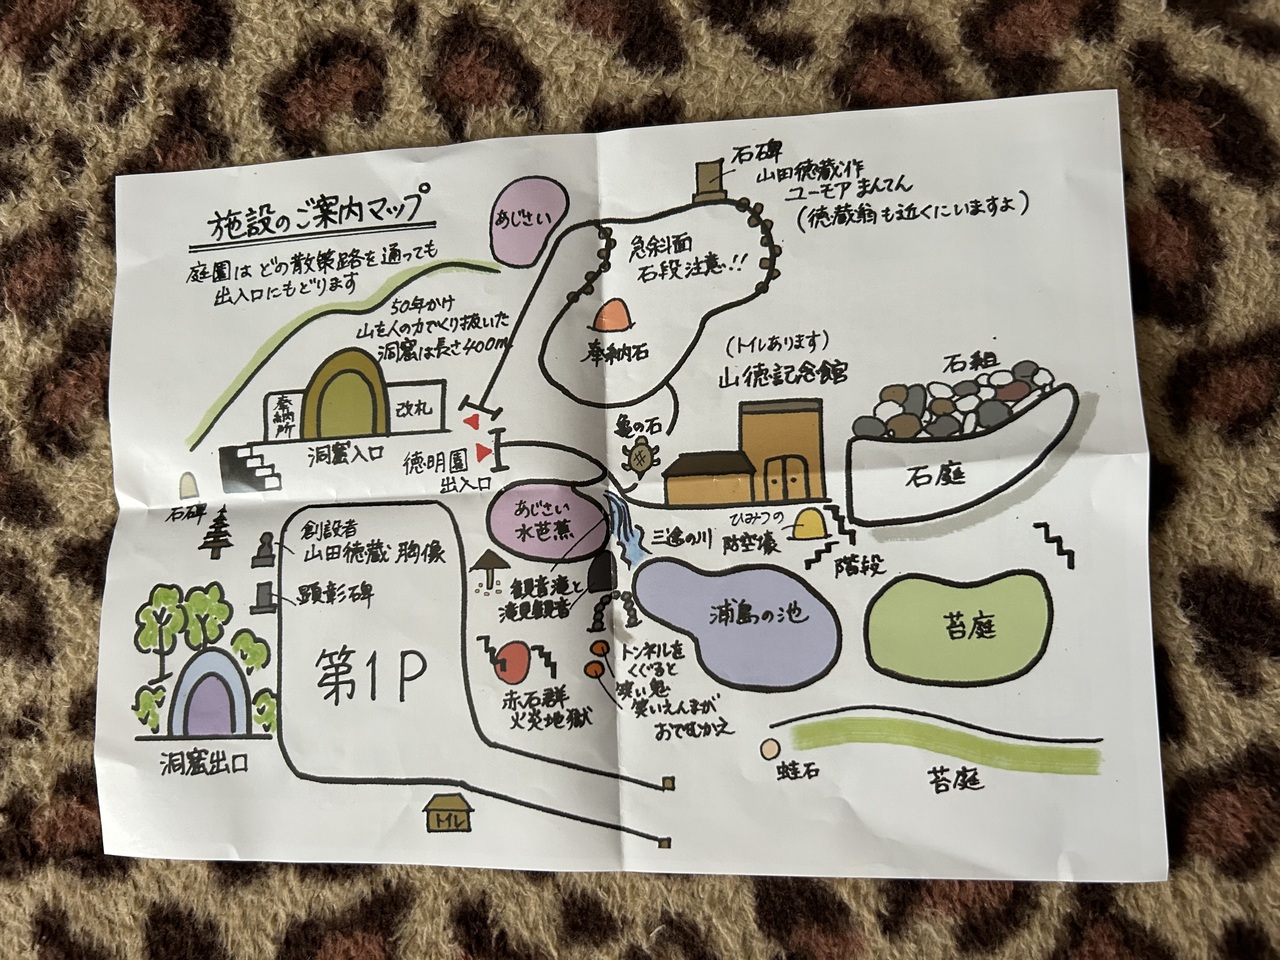 施設のご案内マップ
庭園は どの散策路を通っても
出入口にもどります
あじさい
石碑
山田徳蔵作
ユーモア まんてん
(徳蔵翁も近くにいますよ)
急斜面
石段注意!!
奉納石
50年かけ
山を人の力でくり抜いた
洞窟は長さ400m
奉納所
改札
洞窟入口
徳明園
出入口
石碑
亀の石
(トイレあります)
山徳記念館
石組
石庭
あじさい
水芭蕉
三途の川
ひみつの
防空壕
階段
創設者
山田徳蔵 胸像
顕彰碑
第1P
観音滝と
滝見観音
浦島の池
苔庭
赤石群
火炎地獄
トンネルを
くぐると
笑い鬼
笑いえんまが
おでむかえ
洞窟出口
トイレ
蛙石
苔庭